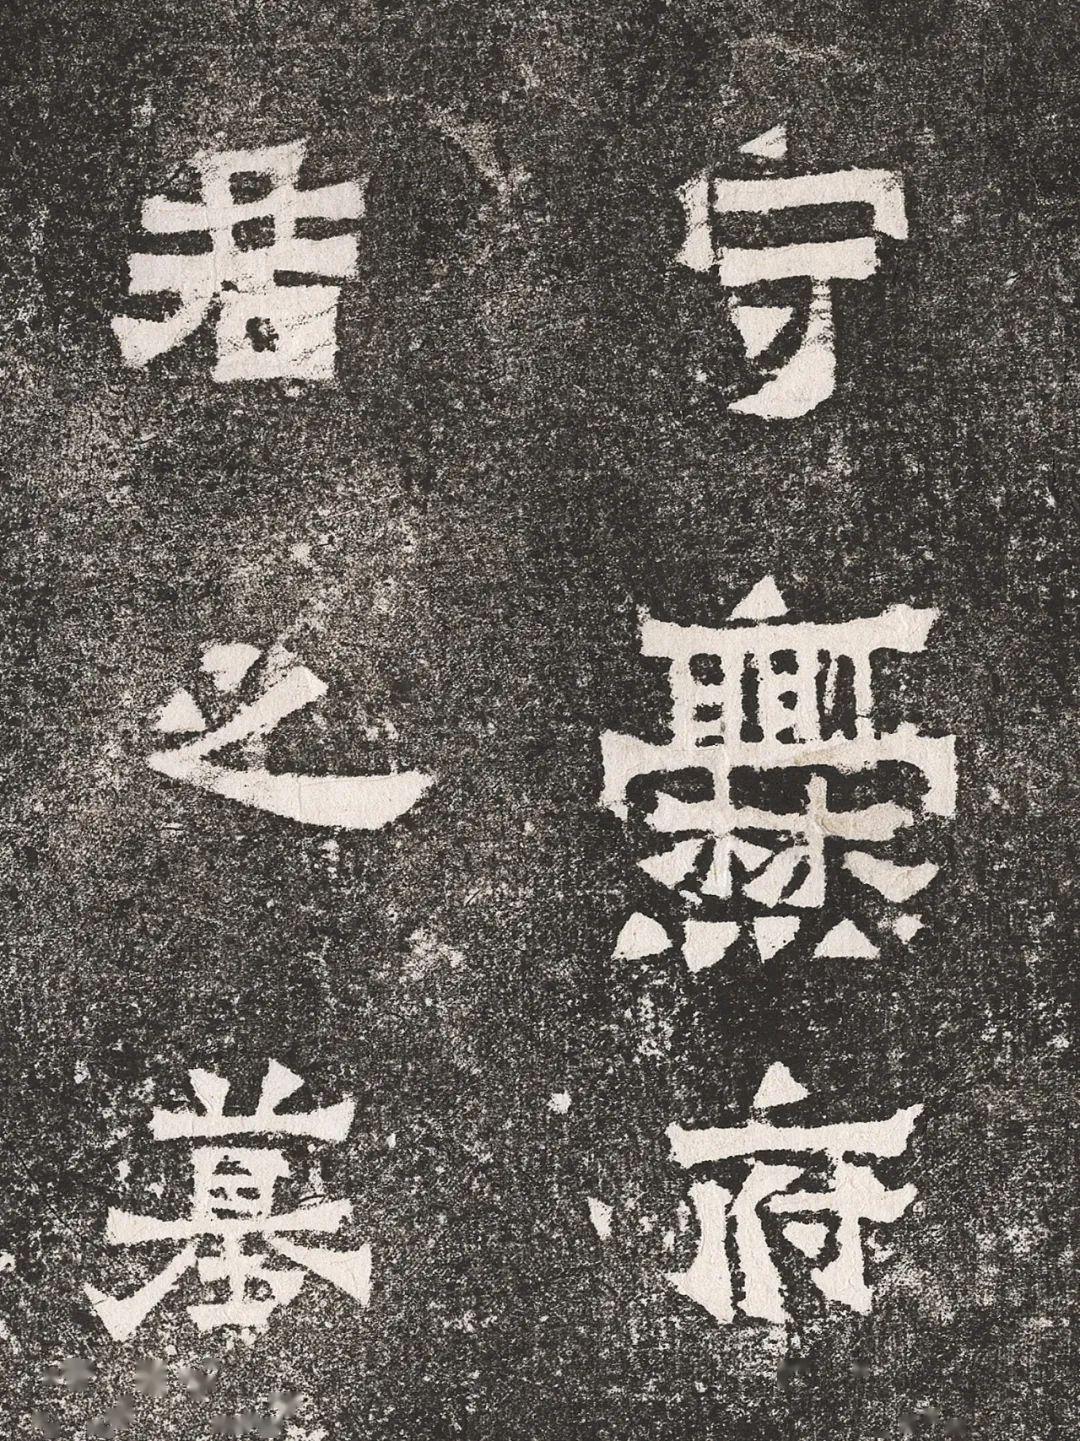 守爨府
君之墓